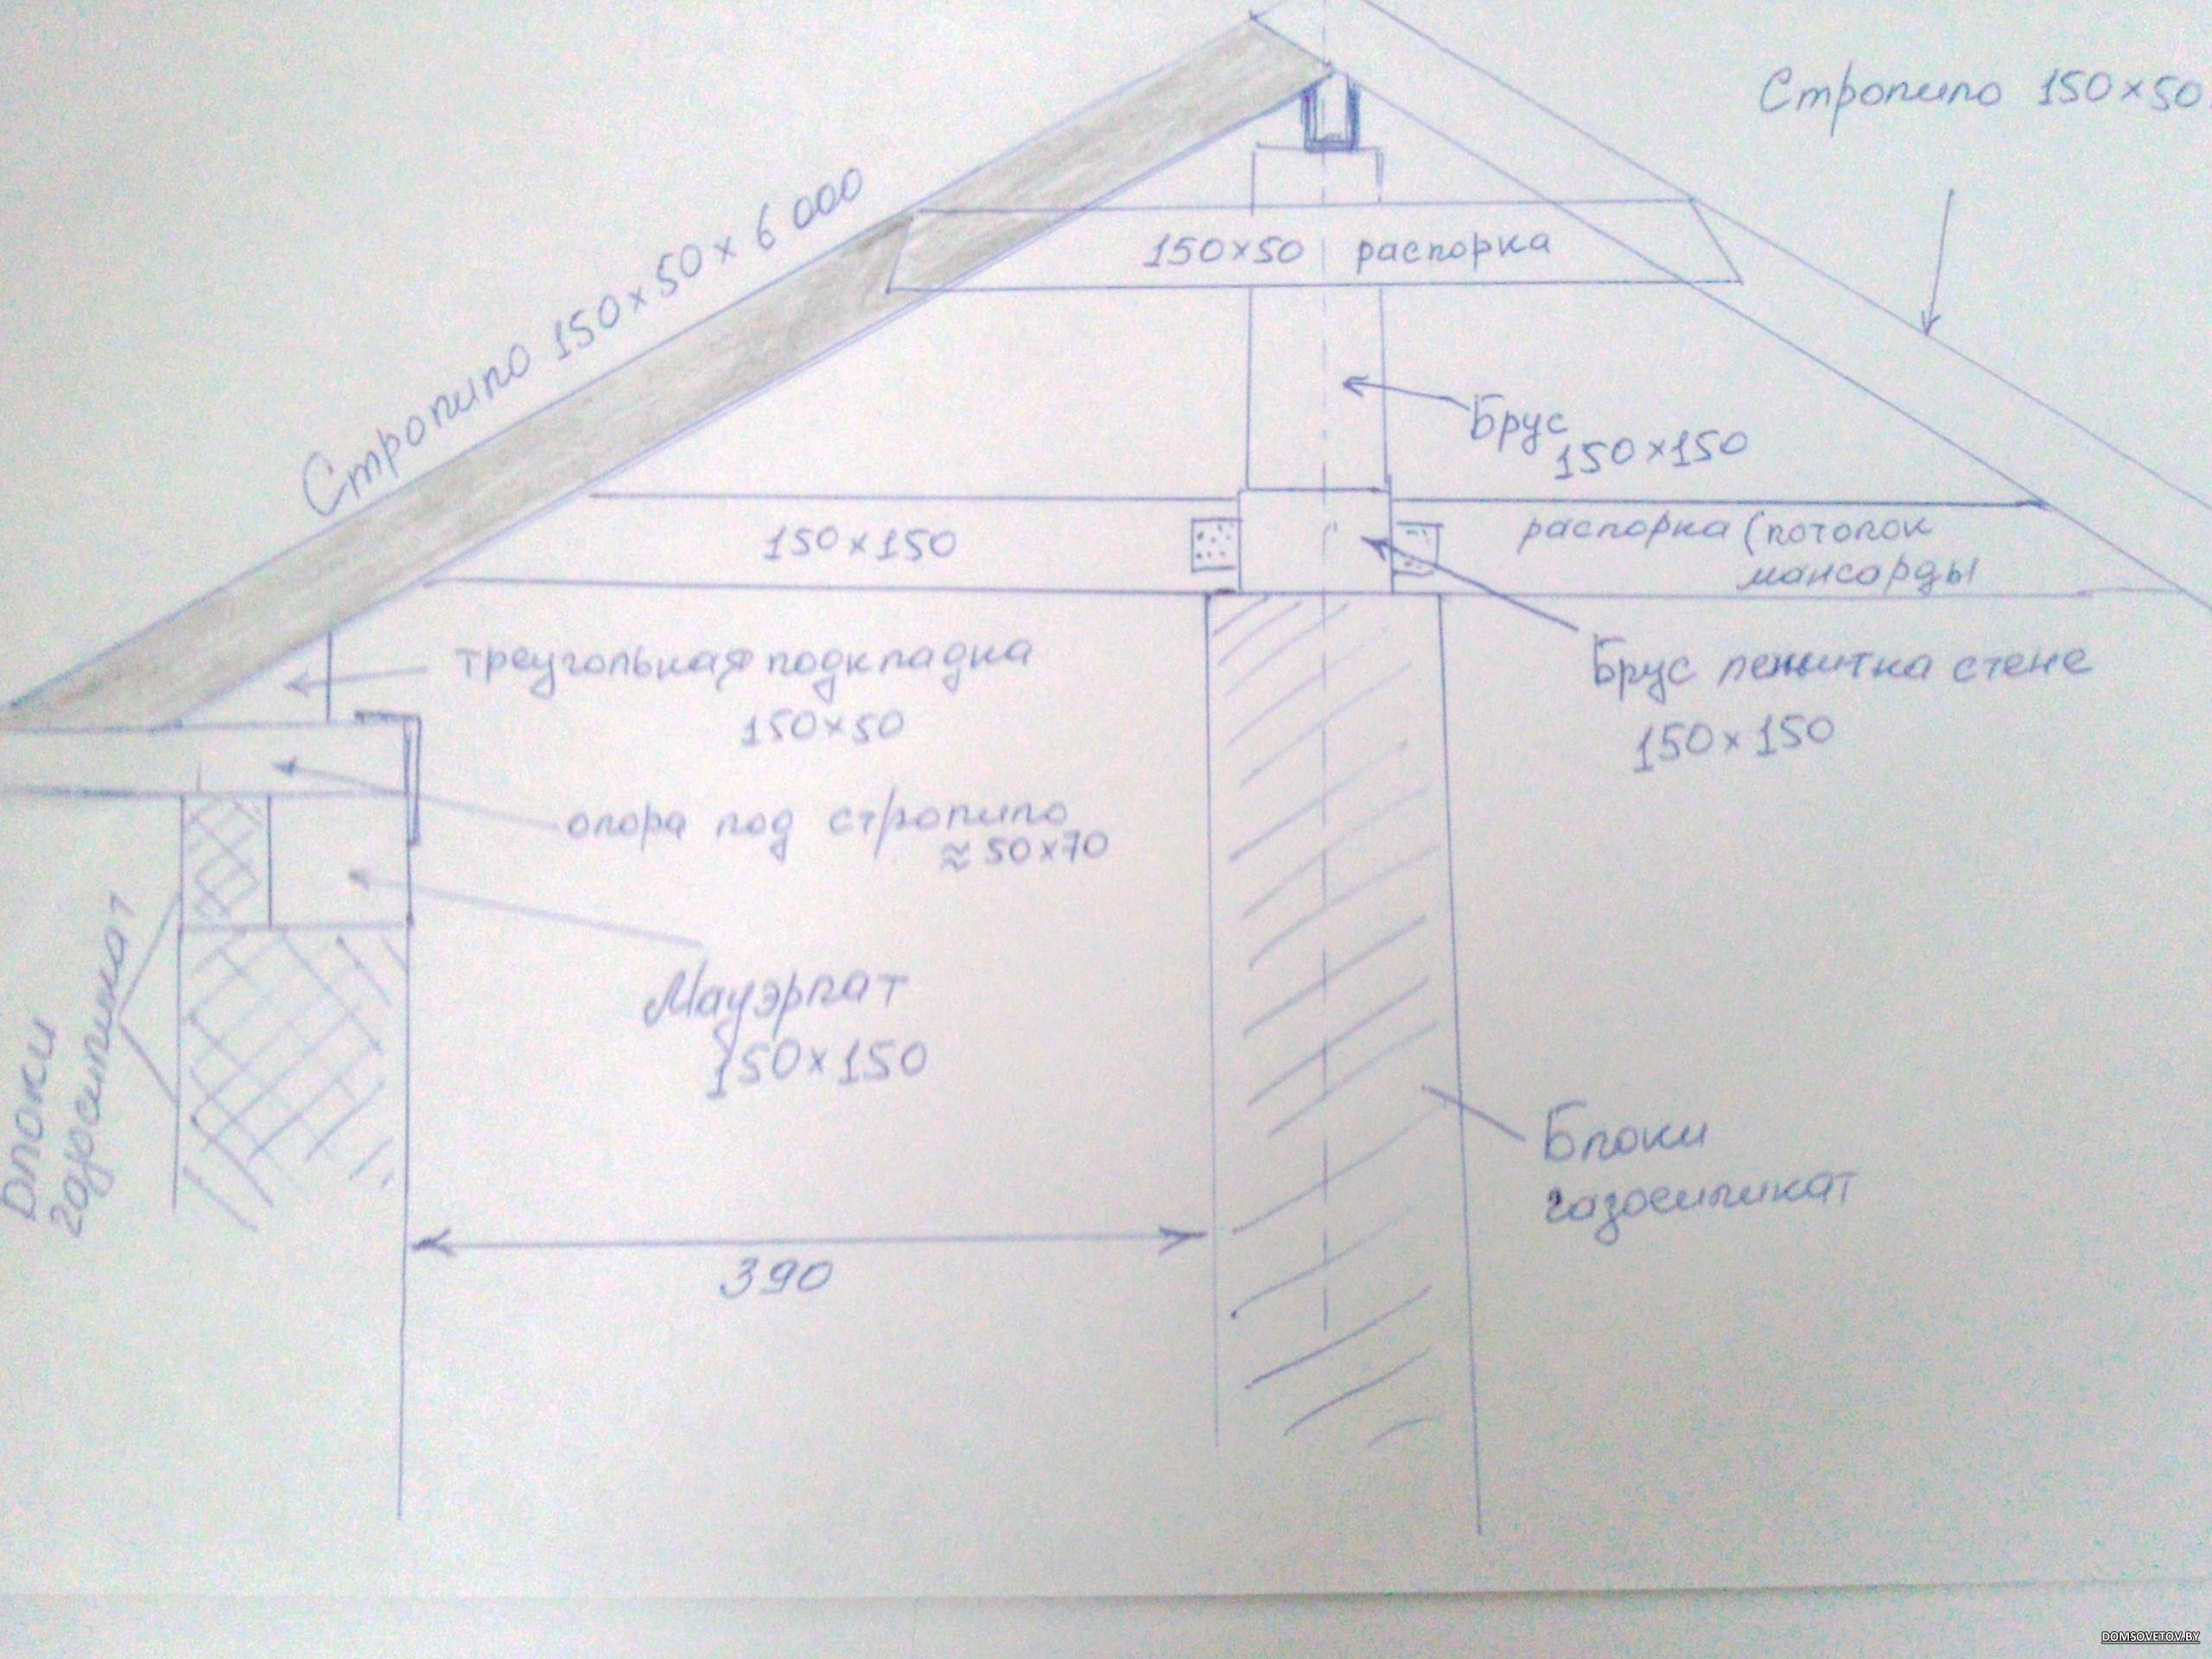 Стропило 150×50
Стропило 150×50×6 000
150×50 распорка
Брус
150×150
150×150
распорка (потолок
мансарды
треугольная подкладка
150×50
Брус лежит на стене
150×150
опора под стропило
≈ 50×70
Мауэрлат
150×150
Блоки
газосиликат
Блоки
газосиликат
390
DOMSOVETOV.BY